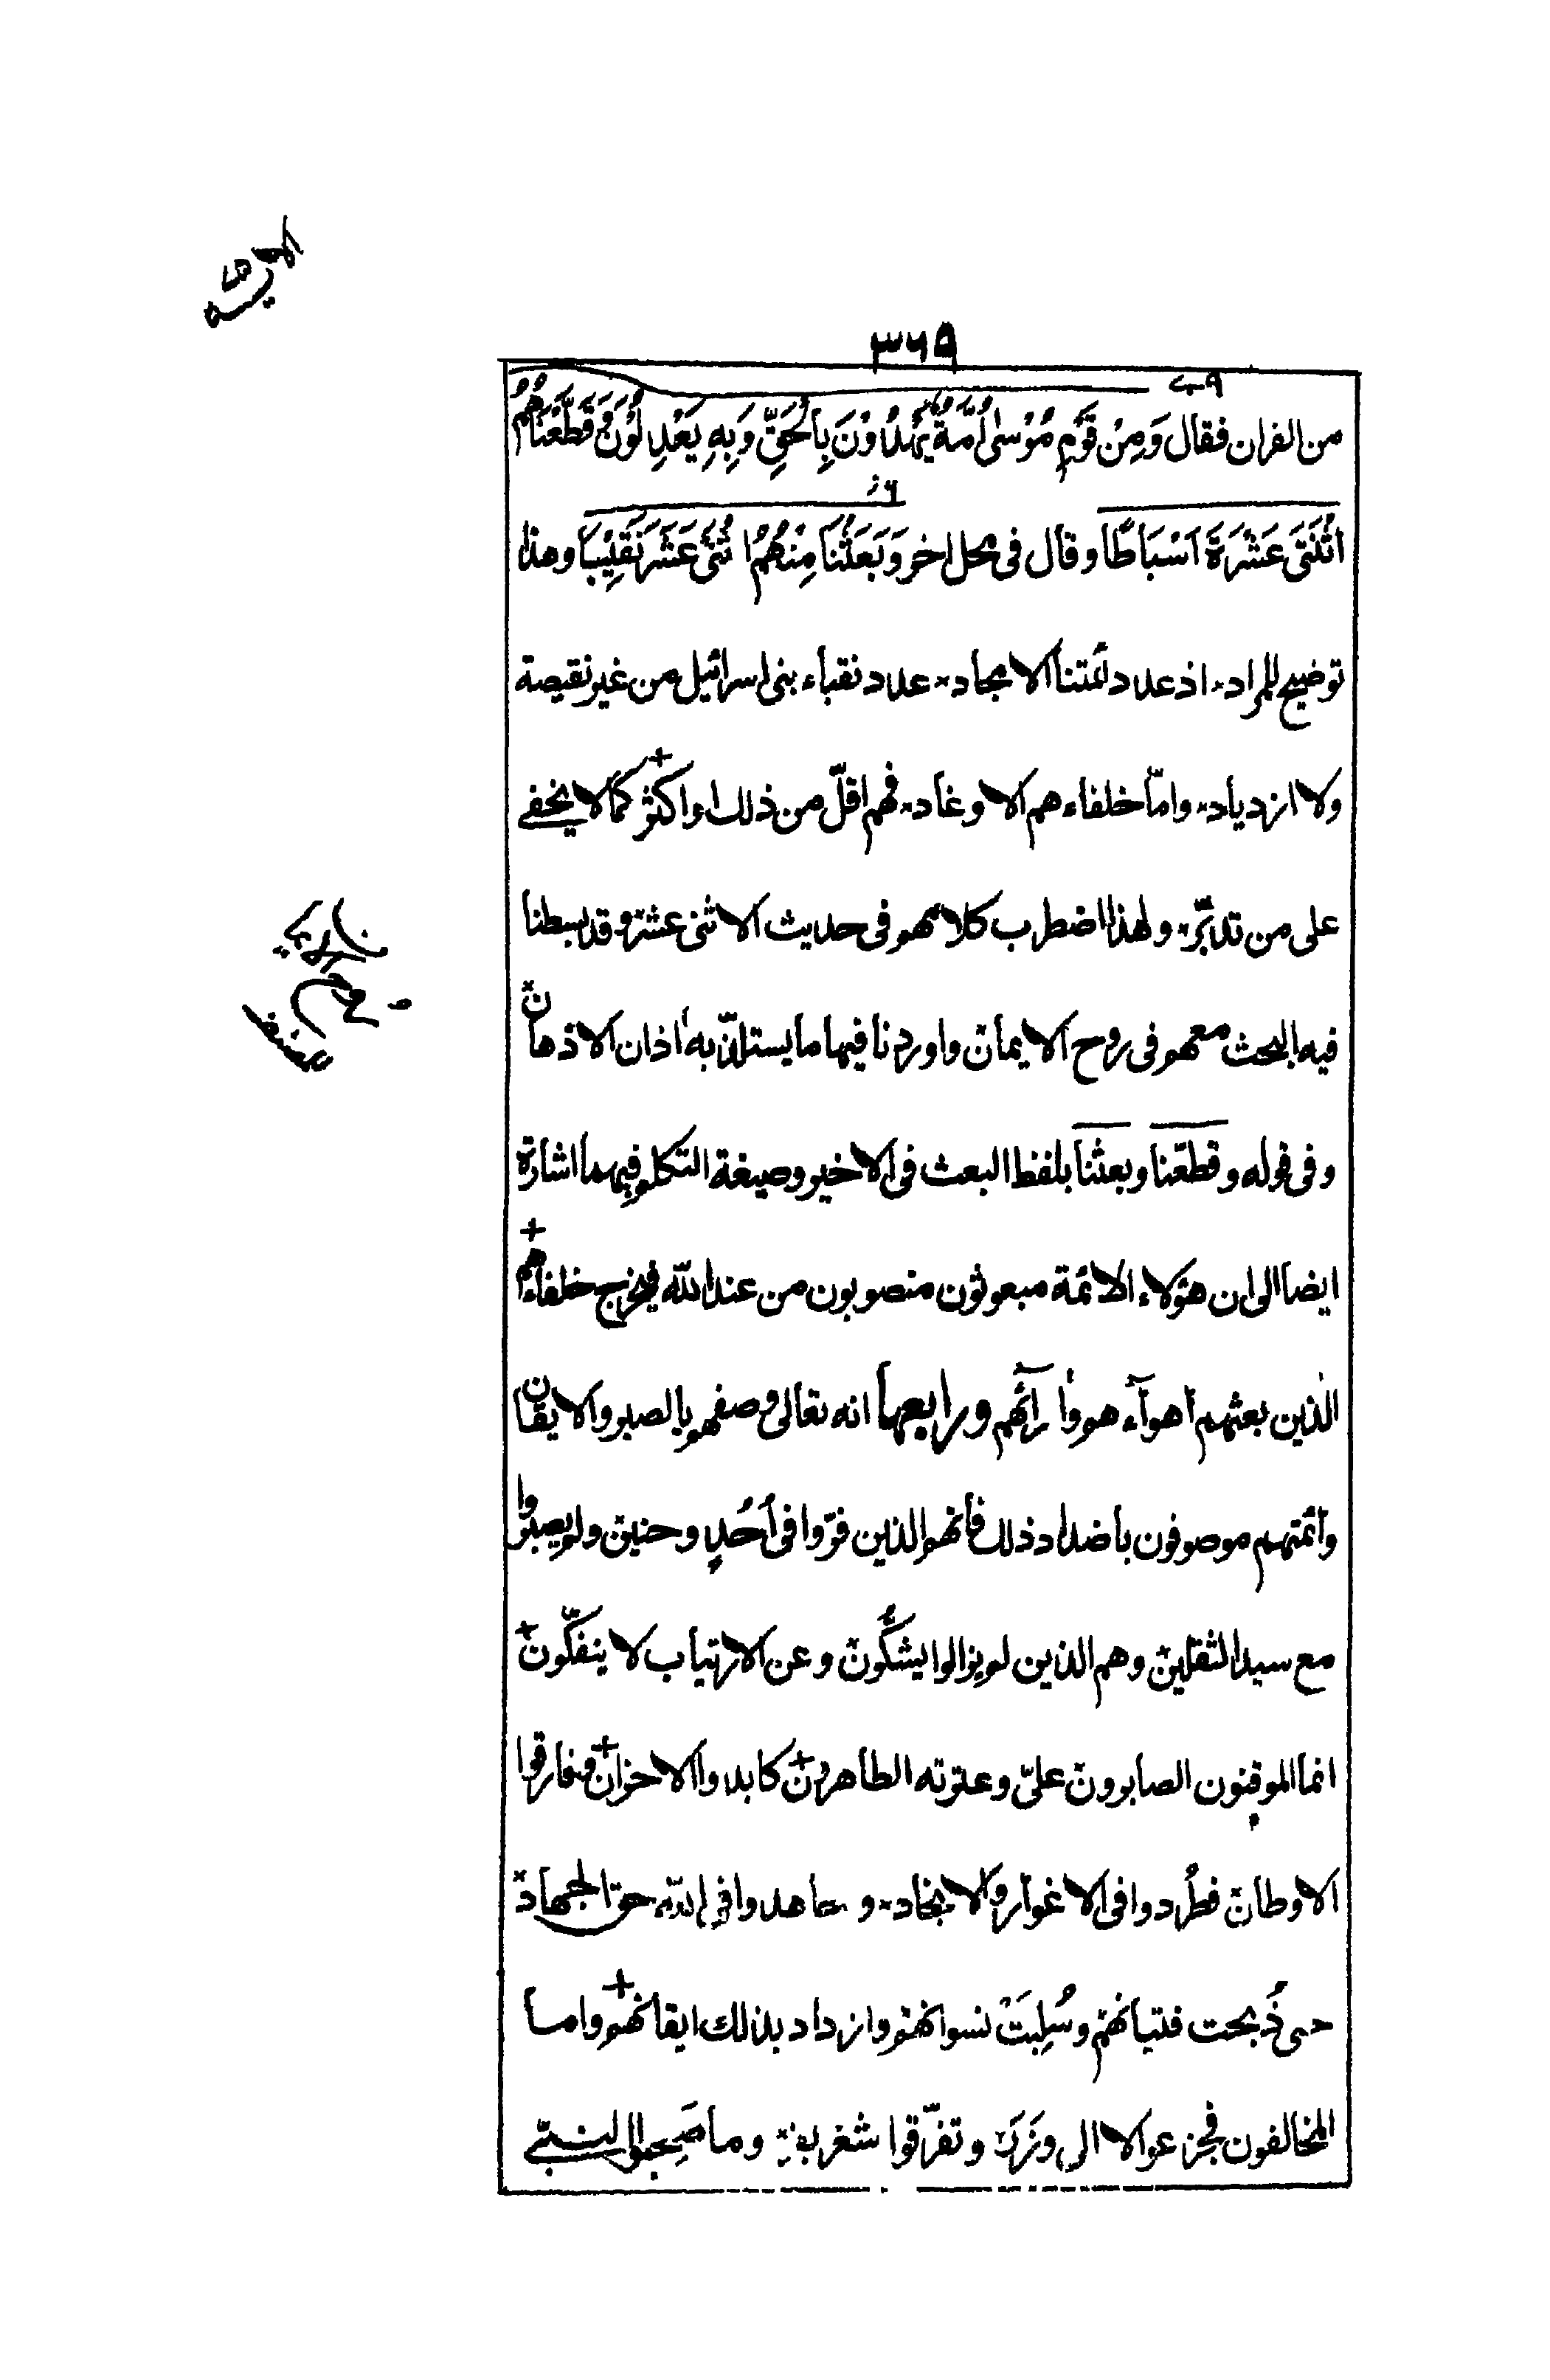 ۳۶۵
من القران فقال وَمِنْ قَوْمِ مُوْسٰى اُمَّةٌ يَّهْدُوْنَ بِالْحَقِّ وَبِهٖ يَعْدِلُوْنَ وَقَطَّعْنٰهُمُ
اثْنَتَىْ عَشْرَةَ اَسْبَاطًا وقال فى محل اخر وَبَعَثْنَا مِنْهُمُ اثْنَىْ عَشَرَ نَقِيْبًا وهذا
توضيح للمراد اذ عدد ائمتنا الامجاد عدد نقباء بنى اسرائيل من غير نقيصة
ولا ازدياد وامّا خلفاءهم الاوغاد فهم اقلّ من ذلك او اكثر كما لا يخفى
على من تدبّر ولهذا اضطرب كلامهم فى حديث الاثنى عشر وقد بسطنا
فيه البحث معهم فى روح الايمان واوردنا فيها ما يستلذّ به اذان الاذهان
وفى قوله وقطّعنا وبعثنا بلفظ البعث فى الاخير وصيغة التكلم فيهما اشارة
ايضا الى ان هؤلاء الائمة مبعوثون منصوبون من عند الله فيخرج خلفاءهم
الذين بعثهم اهوآءهم وارآئهم ورابعها انه تعالى وصفهم بالصبر والايقان
وائمتهم موصوفون باضداد ذلك فانهم الذين فرّوا فى اُحُدٍ وحنين ولم يصبروا
مع سيد الثقلين وهم الذين لم يزالوا يشكّون وعن الارتياب لا ينفكّون
انما الموقنون الصابرون علىّ وعترته الطاهرون كابدوا الاحزان وفارقوا
الاوطان فطُردوا فى الاغوار والانجاد وجاهدوا فى الله حق الجهاد
حتى ذُبحت فتيانهم وسُلِبَتْ نسوانهم وازداد بذلك ايقانهم واما
المخالفون فجزعوا الا الى وَزَرَ وتفرّقوا شغر بغر وما صَحِبوا النبىّ